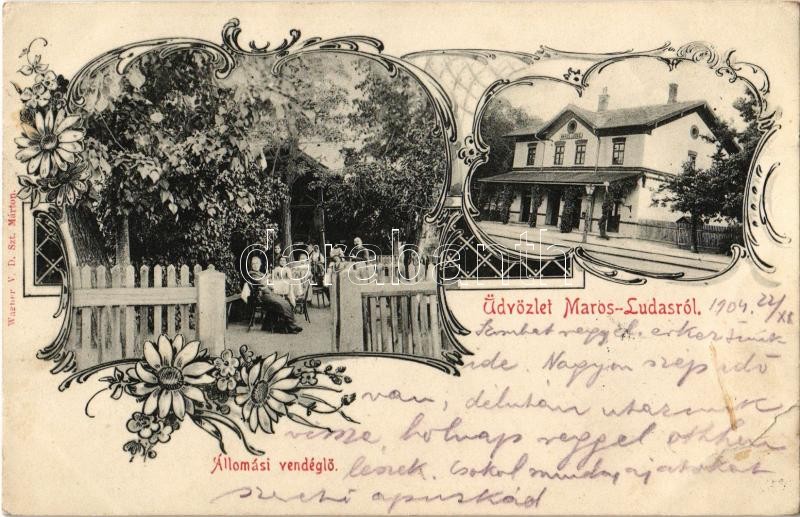 Wagner V. D. Szt. Márton.
Üdvözlet Maros-Ludasról.
1904
Szombat reggel érkeztünk
ide. Nagyon szép idő
van, délután utazunk
vissza, holnap reggel otthon
leszek. Csókol mindnyájatokat
szerető apuskád
Állomási vendéglő.
darabanth.com